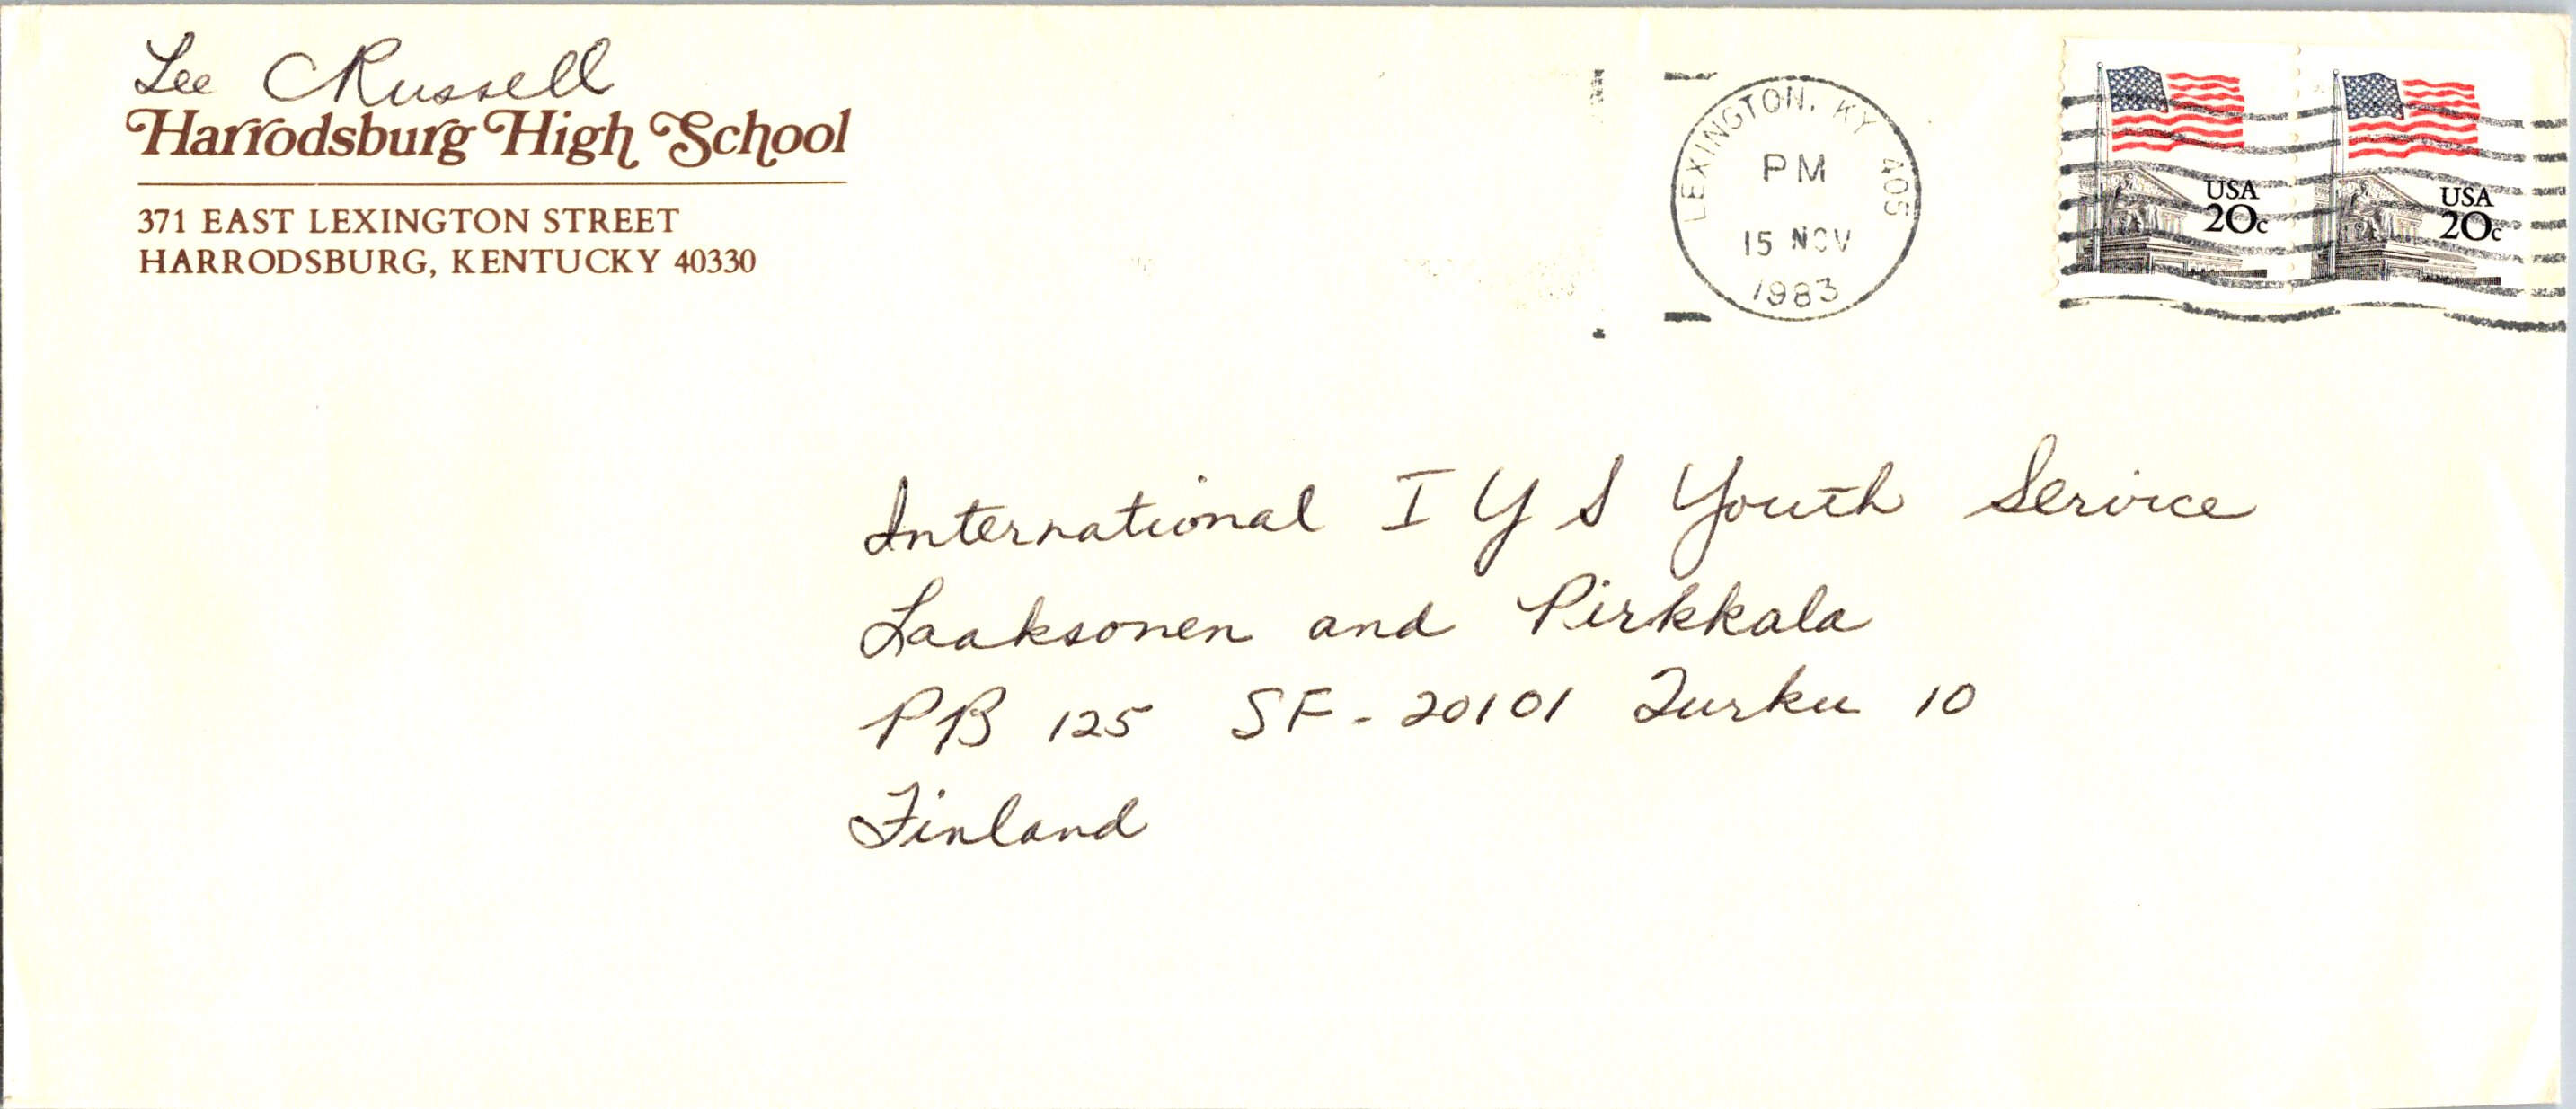 Lee Russell
Harrodsburg High School
371 EAST LEXINGTON STREET
HARRODSBURG, KENTUCKY 40330
LEXINGTON, KY 405
PM
15 NOV
1983
USA
20c
USA
20c
International I Y S Youth Service
Laaksonen and Pirkkala
PB 125 SF-20101 Turku 10
Finland